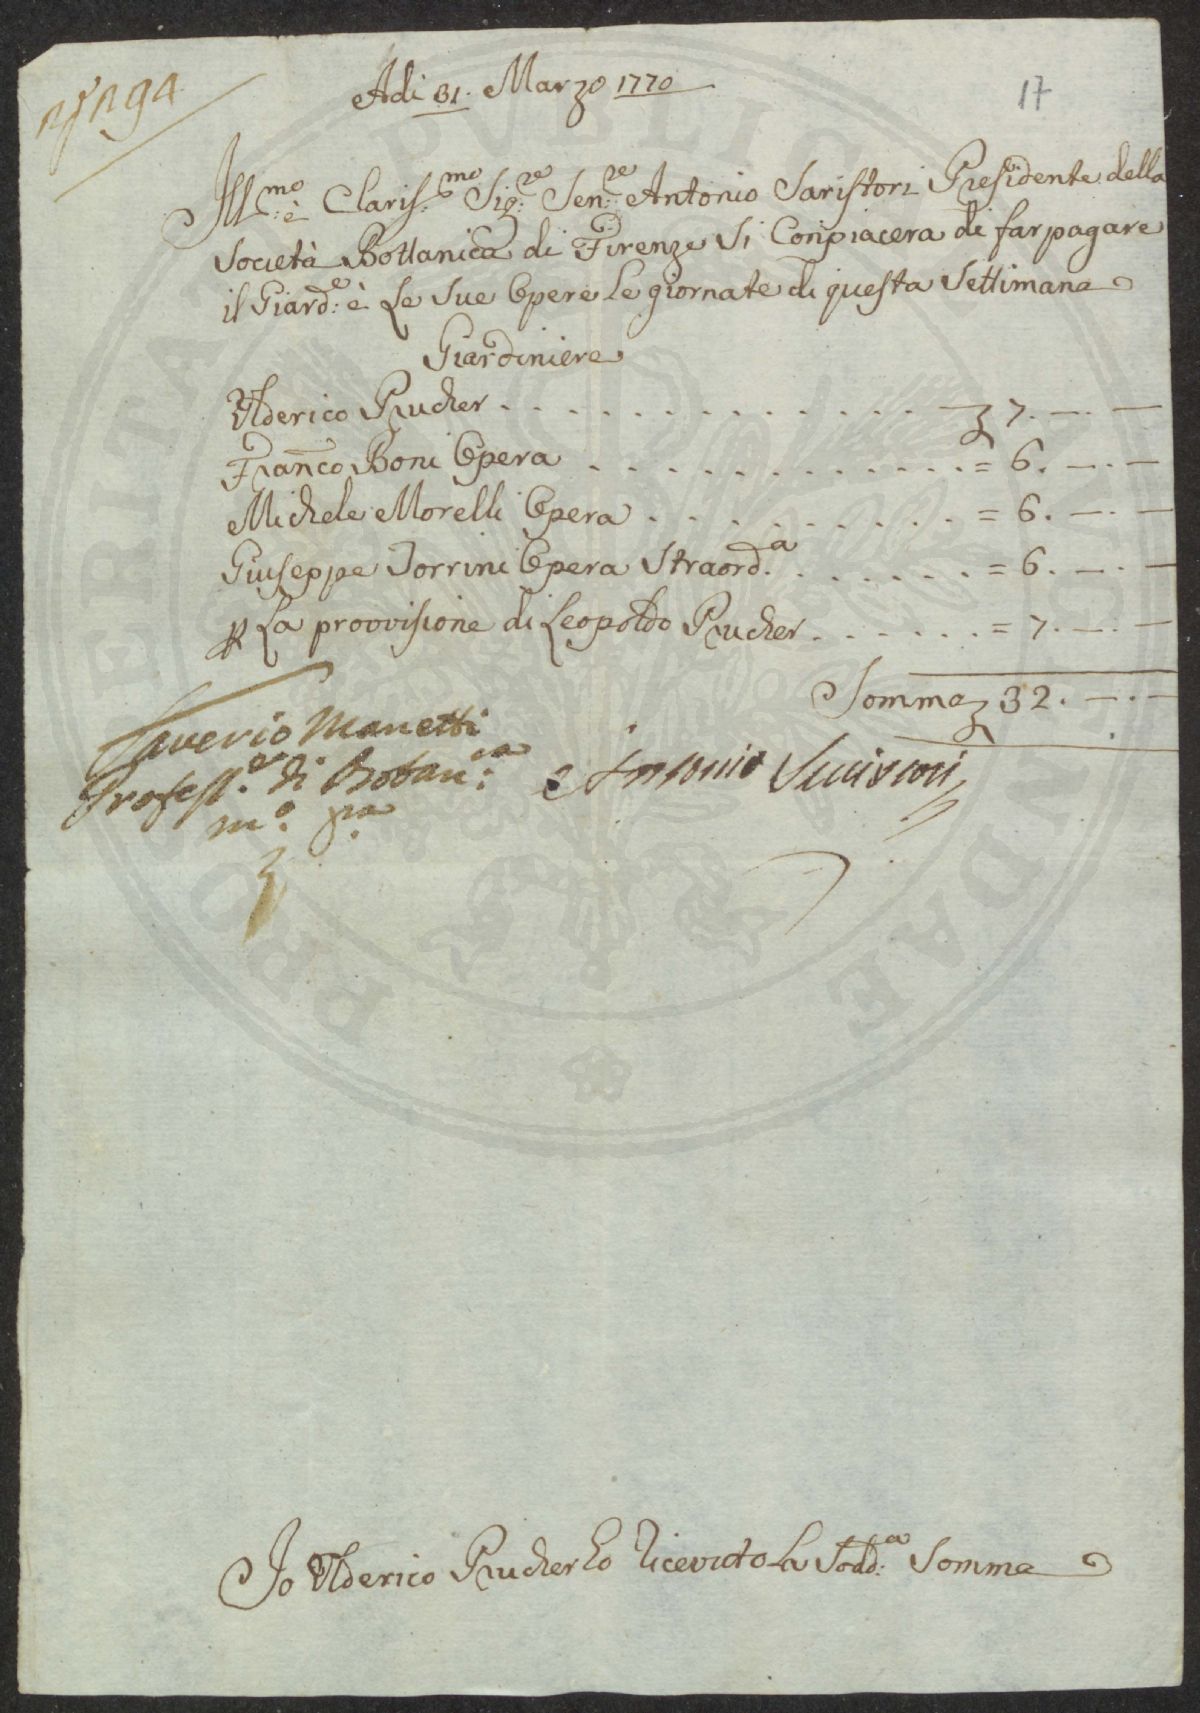 N° 294
17
Adi 31. Marzo 1770
Ill:mo è Claris:mo Sig:re Sen:re Antonio Saristori Presidente della
Società Bottanica di Firenze Si Conpiacera di far pagare
il Giard:e è Le Sue Opere Le giornate di questa Settimana
Giardiniere
Ulderico Prucher . . . . . . . . . . . . . . 7. —. —
Fran̄co Boni Opera . . . . . . . . . . . . . = 6. —. —
Michele Morelli Opera . . . . . . . . . . = 6. —. —
Giuseppe Torrini Opera Straord.a . . . . . . . = 6. —. —
p La provvisione di Leopoldo Prucher . . . . . . . = 7. —. —
Somma 32. —. —
Saverio Manetti
Profess.e di Botan:ca
m.o pa
Antonio Seristori
Io Ulderico Prucher ho Ricevuto La Sodd:a Somma
PRO VERITATE PVBLICA